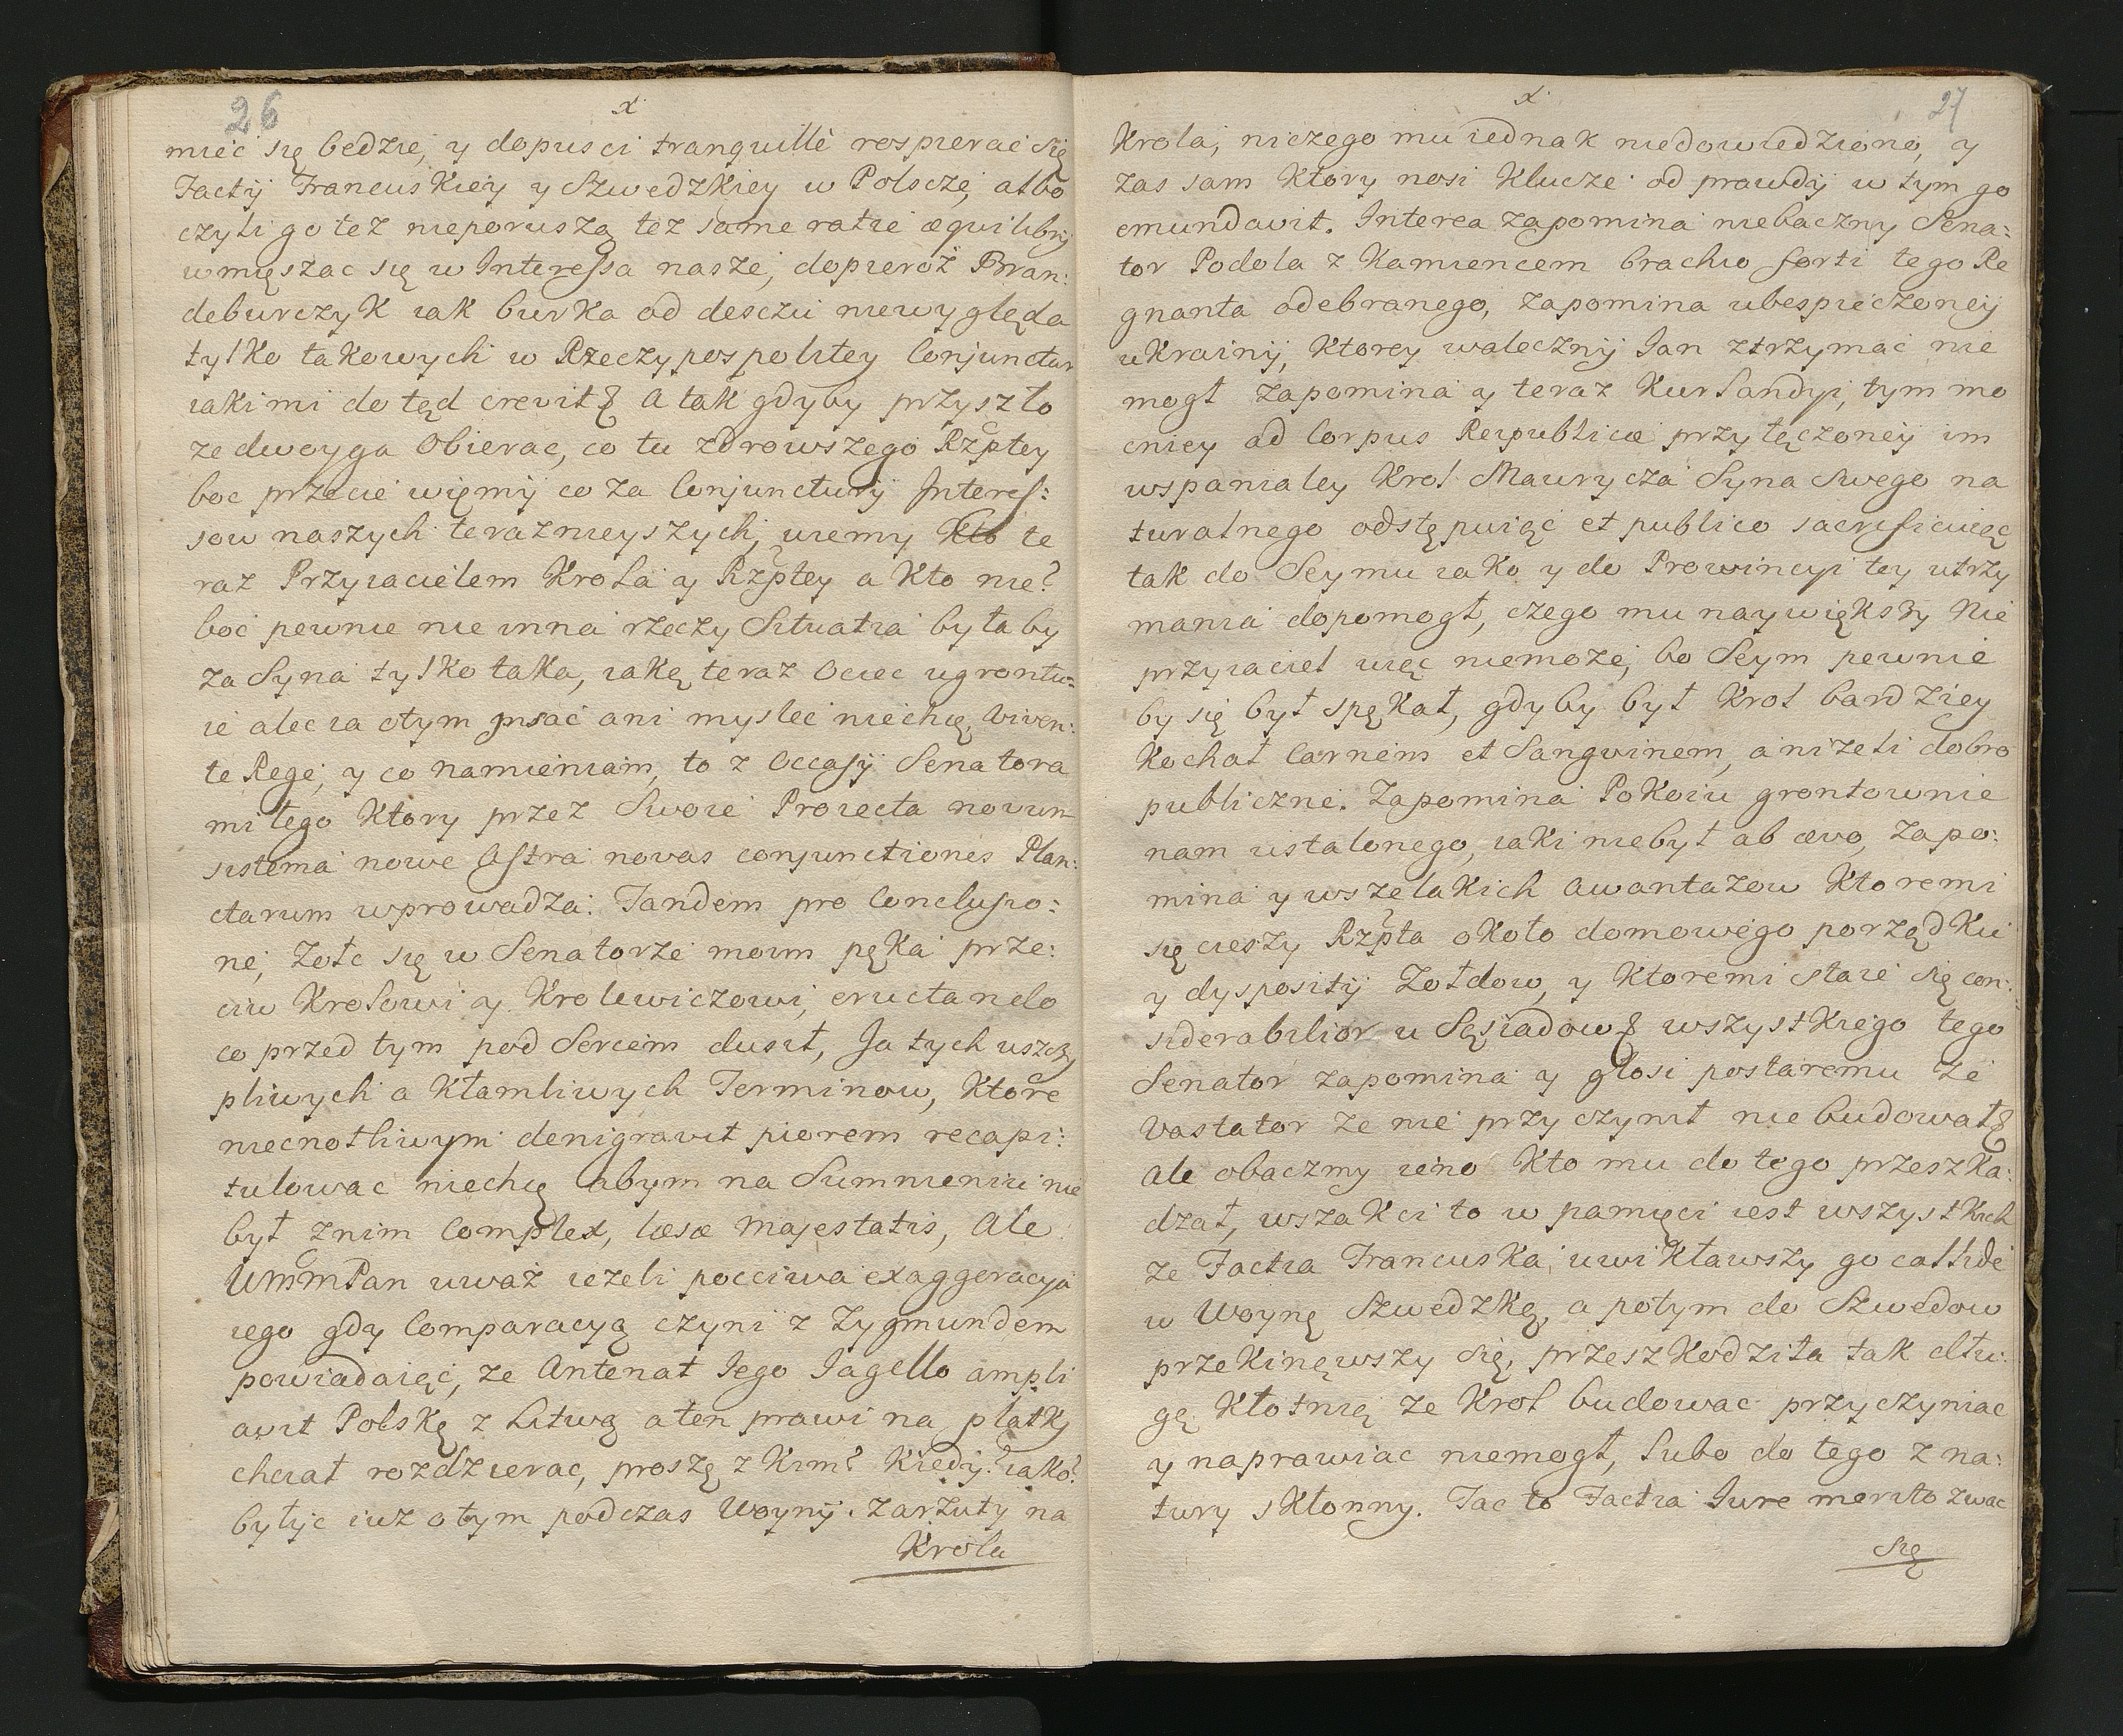 26
x
mieć się będzie, y dopusci tranquille rospierać się
Factij Francuskiey y Szwedzkiey w Polscze, albo
czyli go też nieporuszą też same ratie æquilibrij
wmięszac się w Interessa nasze, dopieroż Bran:
deburczyk iak burka od desczu niewygląda
tylko takowych w Rzeczypospolitey Conjunctur
iakimi do tąd crevit & A tak gdyby przyszło
ze dwoyga Obierac, co tu zdrowszego Rzptey
boc przecie więmij co za Conjunctury Interes:
sow naszych teraznieyszych, wiemy kto te
raz Przyiacielem Krola y Rzptey a Kto nie?
boć pewnie nie inna rzeczy Situatia byłaby
za Syna tylko taka, iaką teraz Ociec ugrontu:
ie alec ia otym pisać ani mysleć niechcę, viven:
te Rege, y co namieniam, to z Occasij Senatora
mitego Ktory przez Swoie Proiecta novum
sistema nowe Astra novas conjunctiones Plan:
etarum wprowadza. Tandem pro Conclusio:
ne, Zołc się w Senatorze moim pęka prze:
ciw Krolowi y Krolewiczowi, eructando
co przed tym pod Sercem dusił, Ja tych uszczy
pliwych a Kłamliwych Terminow, Ktore
niecnotliwym denigravit piorem recapi:
tulowac niechcę abym na Sumnieniu nie
był znim Complex, læsæ Majestatis, Ale
UMmPan uważ ieżeli pocciwa exaggeracya
iego gdy Comparacyą czyni z Zygmundem
powiadaiąc, że Antenat Iego Jagello ampli
avit Polskę z Litwą a ten prawi na płatki
chciał rozdzierac, proszę z Kim? Kiedy? iako?
byłyc iuż otym podczas Woynij. zarzuty na
Krola
27
x
Krola, niczego mu iednak niedowiedziono, y
Zas sam Ktory nosi Klucze od prawdij w tym go
emundavit. Interea zapomina niebaczny Sena:
tor Podola z Kamiencem brachio forti tego Re
gnanta odebranego, zapomina ubespieczoneij
ukrainij, Ktorey walecznij Ian ztrzymać nie
mogł zapomina y teraz Kurlandyi, tym mo
cniey ad Corpus Reipublicæ przyłączoneij im
wspanialey Krol Maurycza Syna Swego na
turalnego odstępuiąc et publico sacrificuiąc
tak do Seymu iako y do Prowincyi tey utrzy
mania dopomogł, czego mu naywiększy Nie
przyiaciel uiąc niemoże, bo Seym pewnie
by się był spękał, gdyby był Krol bardziey
Kochał Carnem et Sangvinem, aniżeli dobro
publiczne. Zapomina Pokoiu grontownie
nam ustalonego, iaki niebył ab ævo, Zapo:
mina y wszelakich awantażow Ktoremi
się cieszy Rzpta około domowego porządku
y dyspositij Zołdow, y Ktoremi staie się con:
siderabilior u Sąsiadow & wszystkiego tego
Senator zapomina y głosi postaremu że
Vastator ze nie przyczynił nie budował &
Ale obaczmy ieno Kto mu do tego przeszka:
dzał, wszakci to w pamięci iest wszystkich
ze Factia Francuska, uwikławszy go callide
w Woynę Szwedzką, a potym do Szwedow
przekinąwszy się, przeszkodziła tak dłu:
gą Kłotnią ze Krol budowac przyczyniac
y naprawiac niemogł, lubo do tego z na:
tury skłonny. Tac to Factia Iure merito zwac
Się